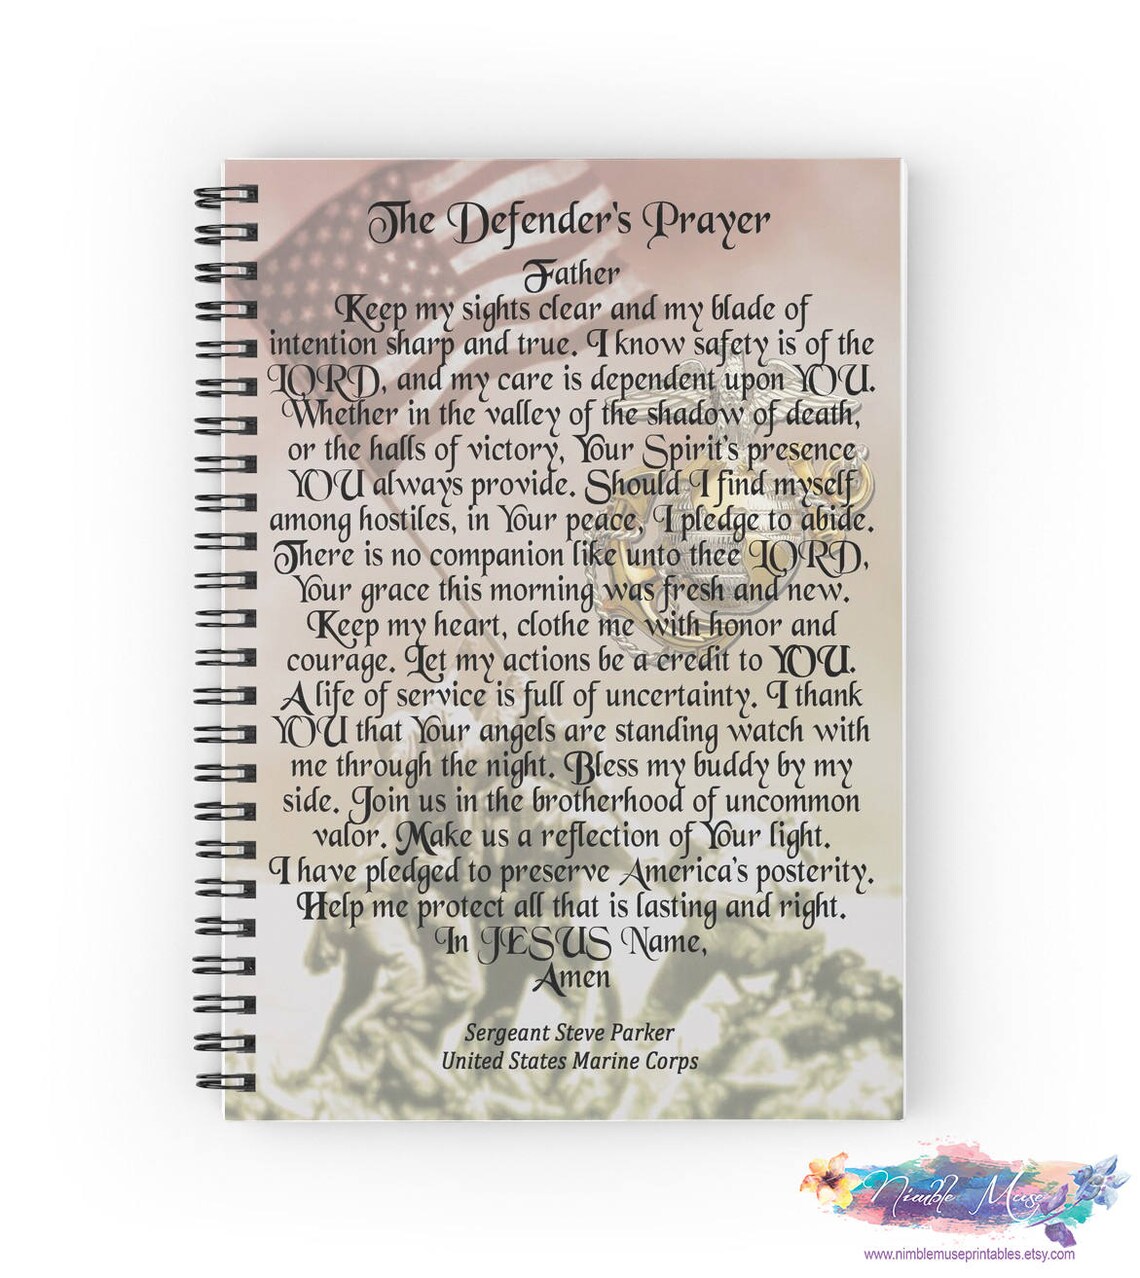 The Defender's Prayer
Father
Keep my sights clear and my blade of
intention sharp and true. I know safety is of the
LORD, and my care is dependent upon YOU.
Whether in the valley of the shadow of death,
or the halls of victory, Your Spirit's presence
YOU always provide. Should I find myself
among hostiles, in Your peace, I pledge to abide.
There is no companion like unto thee LORD,
Your grace this morning was fresh and new.
Keep my heart, clothe me with honor and
courage. Let my actions be a credit to YOU.
A life of service is full of uncertainty. I thank
YOU that Your angels are standing watch with
me through the night. Bless my buddy by my
side. Join us in the brotherhood of uncommon
valor. Make us a reflection of Your light.
I have pledged to preserve America's posterity.
Help me protect all that is lasting and right.
In JESUS Name,
Amen
Sergeant Steve Parker
United States Marine Corps
Nimble Muse
www.nimblemuseprintables.etsy.com